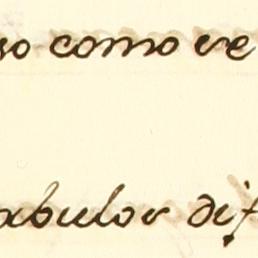 so como ve
abulor dif